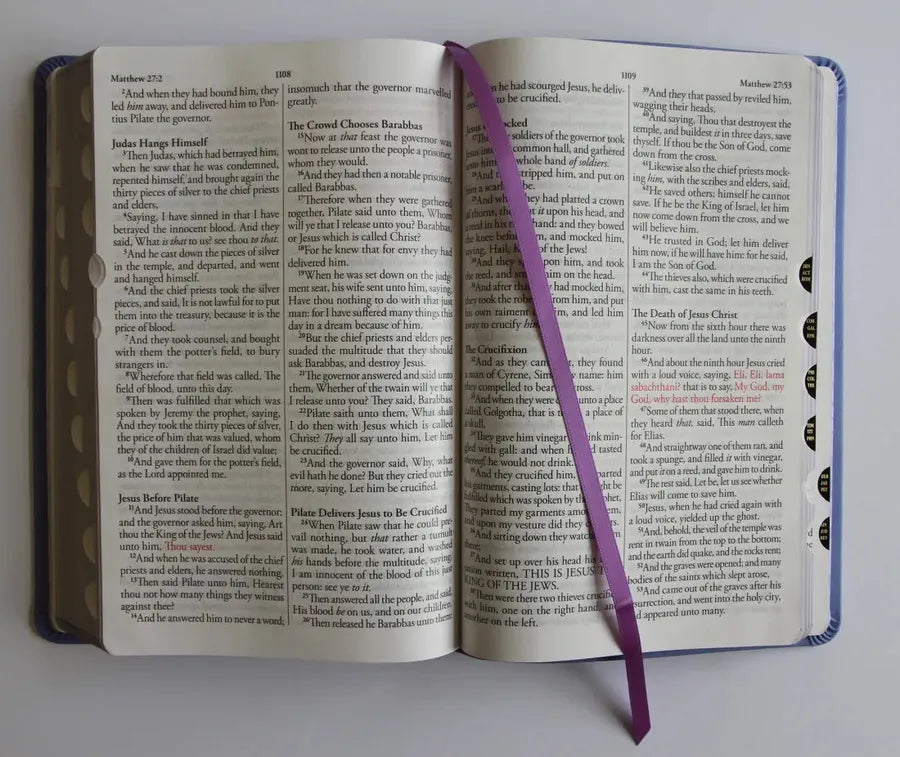 Matthew 27:2
1108
²And when they had bound him, they
led him away, and delivered him to Pon-
tius Pilate the governor.
Judas Hangs Himself
³Then Judas, which had betrayed him,
when he saw that he was condemned,
repented himself, and brought again the
thirty pieces of silver to the chief priests
and elders,
⁴Saying, I have sinned in that I have
betrayed the innocent blood. And they
said, What is that to us? see thou to that.
⁵And he cast down the pieces of silver
in the temple, and departed, and went
and hanged himself.
⁶And the chief priests took the silver
pieces, and said, It is not lawful for to put
them into the treasury, because it is the
price of blood.
⁷And they took counsel, and bought
with them the potter's field, to bury
strangers in.
⁸Wherefore that field was called, The
field of blood, unto this day.
⁹Then was fulfilled that which was
spoken by Jeremy the prophet, saying,
And they took the thirty pieces of silver,
the price of him that was valued, whom
they of the children of Israel did value;
¹⁰And gave them for the potter's field,
as the Lord appointed me.
Jesus Before Pilate
¹¹And Jesus stood before the governor:
and the governor asked him, saying, Art
thou the King of the Jews? And Jesus said
unto him, Thou sayest.
¹²And when he was accused of the chief
priests and elders, he answered nothing.
¹³Then said Pilate unto him, Hearest
thou not how many things they witness
against thee?
¹⁴And he answered him to never a word;
insomuch that the governor marvelled
greatly.
The Crowd Chooses Barabbas
¹⁵Now at that feast the governor was
wont to release unto the people a prisoner,
whom they would.
¹⁶And they had then a notable prisoner,
called Barabbas.
¹⁷Therefore when they were gathered
together, Pilate said unto them, Whom
will ye that I release unto you? Barabbas,
or Jesus which is called Christ?
¹⁸For he knew that for envy they had
delivered him.
¹⁹When he was set down on the judg-
ment seat, his wife sent unto him, saying,
Have thou nothing to do with that just
man: for I have suffered many things this
day in a dream because of him.
²⁰But the chief priests and elders per-
suaded the multitude that they should
ask Barabbas, and destroy Jesus.
²¹The governor answered and said unto
them, Whether of the twain will ye that
I release unto you? They said, Barabbas.
²²Pilate saith unto them, What shall
I do then with Jesus which is called
Christ? They all say unto him, Let him
be crucified.
²³And the governor said, Why, what
evil hath he done? But they cried out the
more, saying, Let him be crucified.
Pilate Delivers Jesus to Be Crucified
²⁴When Pilate saw that he could pre-
vail nothing, but that rather a tumult
was made, he took water, and washed
his hands before the multitude, saying,
I am innocent of the blood of this just
person: see ye to it.
²⁵Then answered all the people, and said,
His blood be on us, and on our children.
²⁶Then released he Barabbas unto them:
1109
Matthew 27:53
he had scourged Jesus, he deliv-
to be crucified.
Jesus
soldiers of the governor took
Jesus common hall, and gathered
unto whole band of soldiers.
stripped him, and put on
him a scarlet
when they had platted a crown
of thorns, it upon his head, and
a reed in his hand: and they bowed
the knee before and mocked him,
saying, Hail, of the Jews!
upon him, and took
the reed, and him on the head.
after had mocked him,
they took the robe from him, and put
his own raiment on him, and led him
away to crucify
The Crucifixion
³²And as they they found
a man of Cyrene, name: him
they compelled to bear cross.
when they were unto a place
called Golgotha, that is a place of
a skull,
³⁴They gave him vinegar min-
gled with gall: and when tasted
thereof, he would not drink.
And they crucified him,
his garments, casting lots: that be
fulfilled which was spoken by
They parted my garments
and upon my vesture did they
And sitting down they watched
there;
And set up over his head
written, THIS IS JESUS
KING OF THE JEWS.
Then were there two thieves
with him, one on the right hand, and
another on the left.
³⁹And they that passed by reviled him,
wagging their heads,
⁴⁰And saying, Thou that destroyest the
temple, and buildest it in three days, save
thyself. If thou be the Son of God, come
down from the cross.
⁴¹Likewise also the chief priests mock-
ing him, with the scribes and elders, said,
⁴²He saved others; himself he cannot
save. If he be the King of Israel, let him
now come down from the cross, and we
will believe him.
⁴³He trusted in God; let him deliver
him now, if he will have him: for he said,
I am the Son of God.
⁴⁴The thieves also, which were crucified
with him, cast the same in his teeth.
The Death of Jesus Christ
⁴⁵Now from the sixth hour there was
darkness over all the land unto the ninth
hour.
⁴⁶And about the ninth hour Jesus cried
with a loud voice, saying, Eli, Eli, lama
sabachthani? that is to say, My God, my
God, why hast thou forsaken me?
⁴⁷Some of them that stood there, when
they heard that, said, This man calleth
for Elias.
⁴⁸And straightway one of them ran, and
took a spunge, and filled it with vinegar,
and put it on a reed, and gave him to drink.
⁴⁹The rest said, Let be, let us see whether
Elias will come to save him.
⁵⁰Jesus, when he had cried again with
a loud voice, yielded up the ghost.
⁵¹And, behold, the veil of the temple was
rent in twain from the top to the bottom;
and the earth did quake, and the rocks rent;
⁵²And the graves were opened; and many
bodies of the saints which slept arose,
⁵³And came out of the graves after his
resurrection, and went into the holy city,
and appeared unto many.